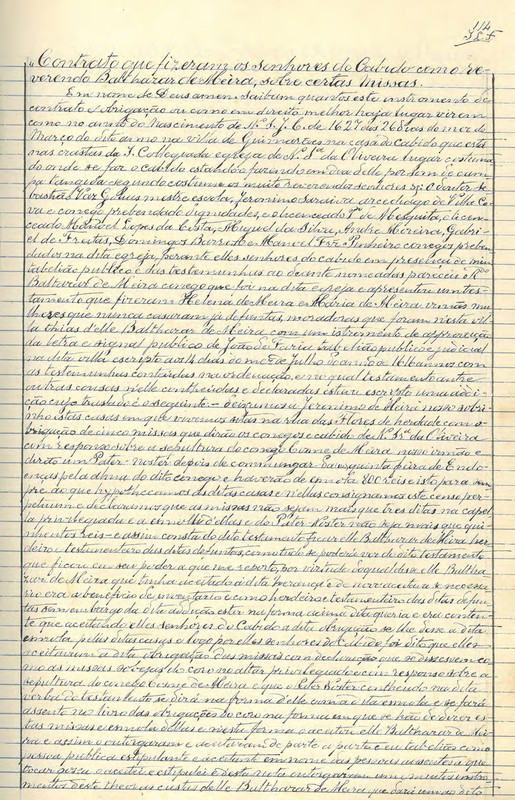 114
"Contrato que fizeram os senhores do Cabido com o re-
verendo Balthazar de Meira, sobre certas missas.
Em nome de Deus amen. Saibam quantos este instromento de
contrato e obrigação ou como em direito melhor haja lugar virem
como no anno do Nascimento de N. S. J. C. de 1627 aos 26 dias do mez de
Março do dito anno na villa de Guimarães na casa do cabido que está
nas crastas da I. Collegiada egreja de N. Sra da Oliveira lugar costuma
do onde se faz o cabido estabido e fazendo em dia delle por som de cam
pa tangida segundo costume os muito reverendos senhores o doutor Se
bastião Vaz Golias mestre escola, Jeronimo Saraiva arcediago de Villa Co
va e conego prebendado dignidades, o licenceado de Mesquita, o licen
ceado Manoel Lopes da Costa, Miguel da Silva, Andre Moreira, Gabri
el de Freitas, Domingos Barroso e Manoel Frz Pinheiro conegos preben
dados na dita egreja, perante elles senhores do cabido em presença de mim
tabelião publico e das testemunhas ao deante nomeadas pareceu
Balthazar de Meira conego que foi na dita egreja e apresentou um tes-
tamento que fizeram Helena de Meira e Maria de Meira irmãs mu
lheres que nunca casaram já defuntas, moradoras que foram nesta vil
la thias d'elle Balthazar de Meira com um istromento de approvação
da letra e signal publico de João de Faria tabelião publico e judicial
na dita villa escripto aos 14 dias do mez de Julho do anno de 1616 anno com
as testemunhas contheudas na ordenação, e no qual testamento antre
outras cousas nelle contheudas e declaradas estava escripto uma addi-
ção cujo traslado é o seguinte - Deixamos a Jeronimo de Meira nosso sobri
nho estas casas em que vivemos sitas na Rua das Flores de herdade com o-
brigação de cinco missas que dirão os conegos e cabido de N. Sra da Oliveira
com responso sobre a sepultura do conego Cosme de Meira nosso irmão e
dirão um Pater-Noster depois de commungar pa quinta feira de Endo-
enças pela alma do dito conego e haverão de esmola 800 reis e isto para sem
pre, do que hypothecamos as ditas casas e n'ellas consignamos este censo per-
petuum e declaramos que as missas não sejam mais que tres ditas na capel
la privilegiada e a esmola d'ellas e do Pater Noster não seja mais que qui-
nhentos reis - e assim consta do dito testamento ficar elle Balthazar de Meira her
deiro e testamenteiro das ditas defuntas, como tudo se poderia ver do dito testamento
que ficou em seu poder a que me reporto, por virtude do qual disse elle Baltha
zar de Meira que tinha aceitado a dita herança e de novo aceitava se necessa
rio era a beneficio de inventario e como herdeiro e testamenteiro das ditas defun
tas sem embargo da dita addição estar na forma acima dita queria e era conten
te que aceitando elles senhores do Cabido a dita obrigação se lhe desse a dita
esmola pelas ditas casas e logo por elles senhores do Cabido foi dito que elles
aceitavam a dita obrigação das missas com declaração que se dissessem co-
mo as missas do coro no altar privilegiado e com responso sobre a
sepultura do conego Cosme de Meira e que o Pater Noster contheudo na dita
verba do testamento se dirá na forma delle com a dita esmola e se fará
assento no livro das obrigações do coro na forma em que se hão de dizer es
tas missas e esmola dellas e nesta forma o aceitou elle Balthazar de Mei-
ra e assim o outorgaram e aceitaram de parte a parte e eu tabelião como
pessoa publica estipulante e aceitante em nome das pessoas ausentes a que
tocar possa o aceitei e estipulei e desta nota outorgaram um e muitos instru
mentos deste theor as custas delle Balthazar de Meira que daria um ao dito